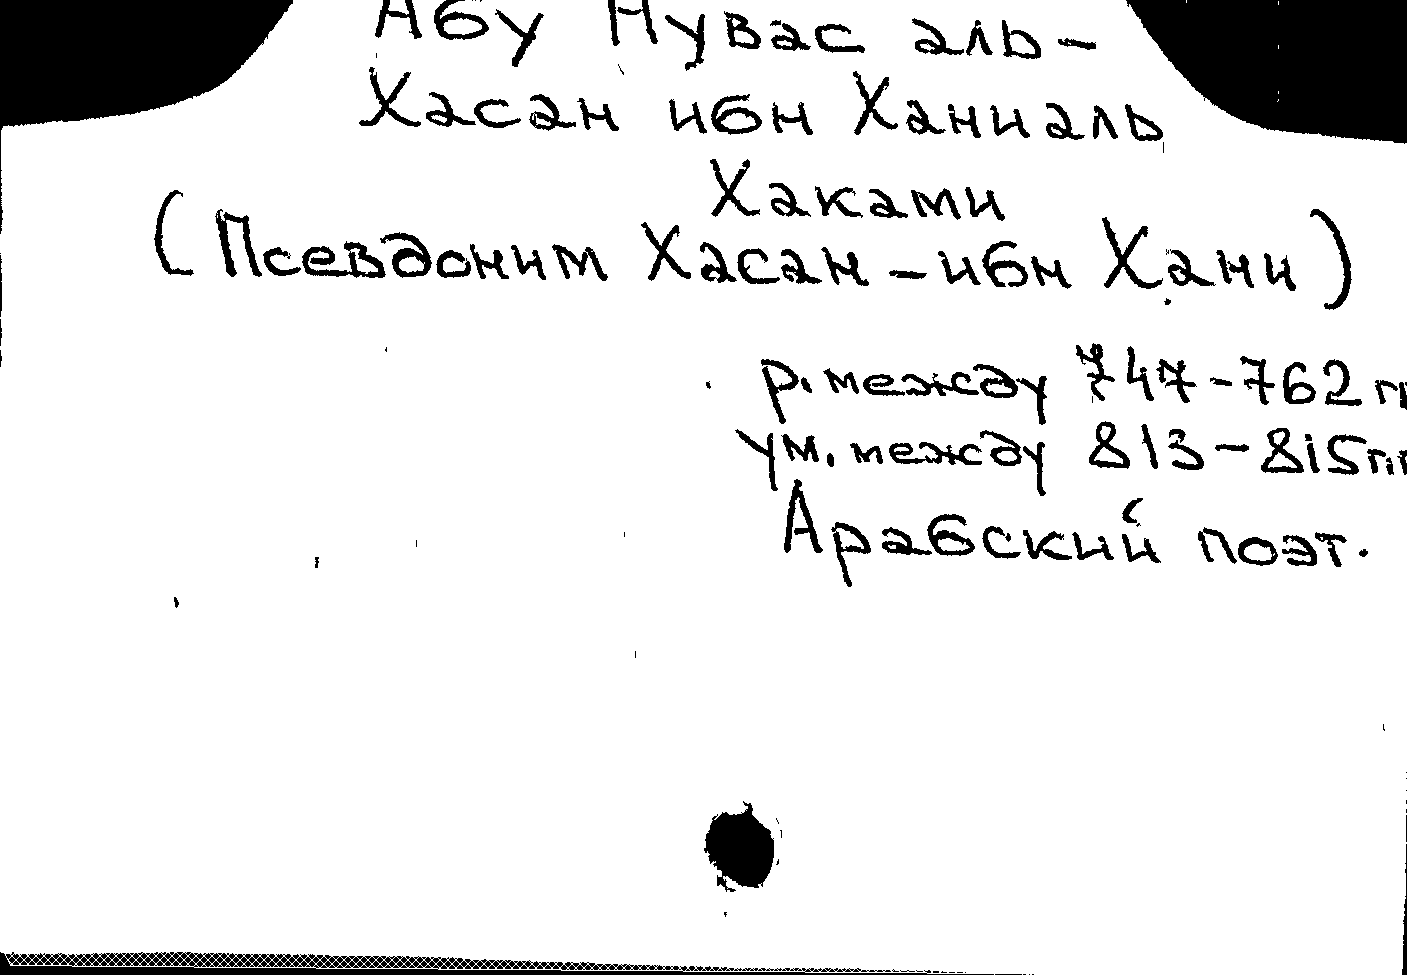 Абу Нувас аль-
Хасан ибн Ханиаль
Хаками
(Псевдоним Хасан-ибн Хани)
р. между 747-762 гг
ум. между 813-815 гг
Арабский поэт.